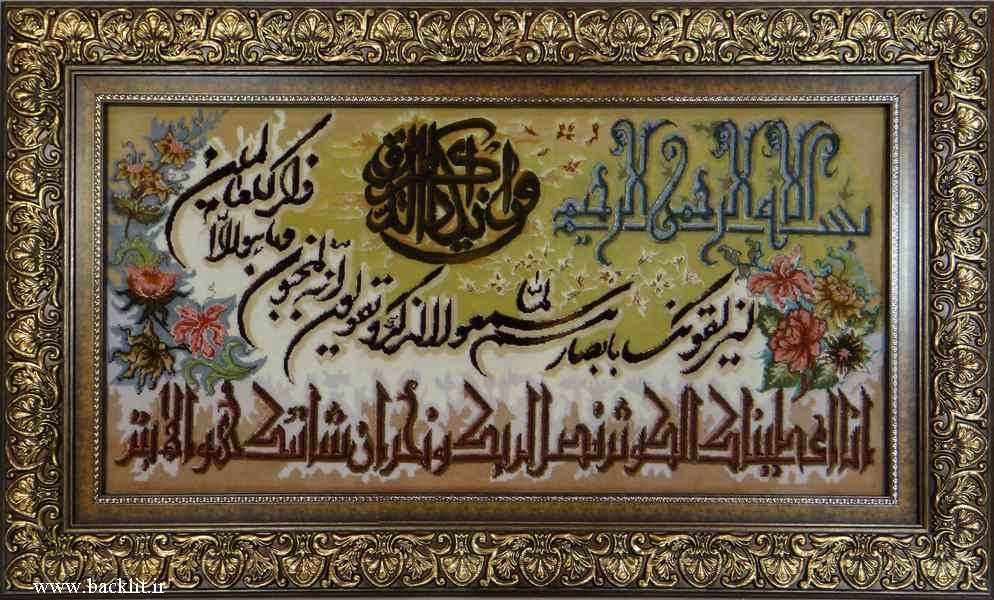 بسم الله الرحمن الرحیم
وان یکاد الذین کفروا
لیزلقونک بابصارهم لما سمعوا الذکر و یقولون انه لمجنون
وما هو الا
ذکر للعالمین
انا اعطیناک الکوثر فصل لربک ونحر ان شانئک هو الابتر
www.backlit.ir